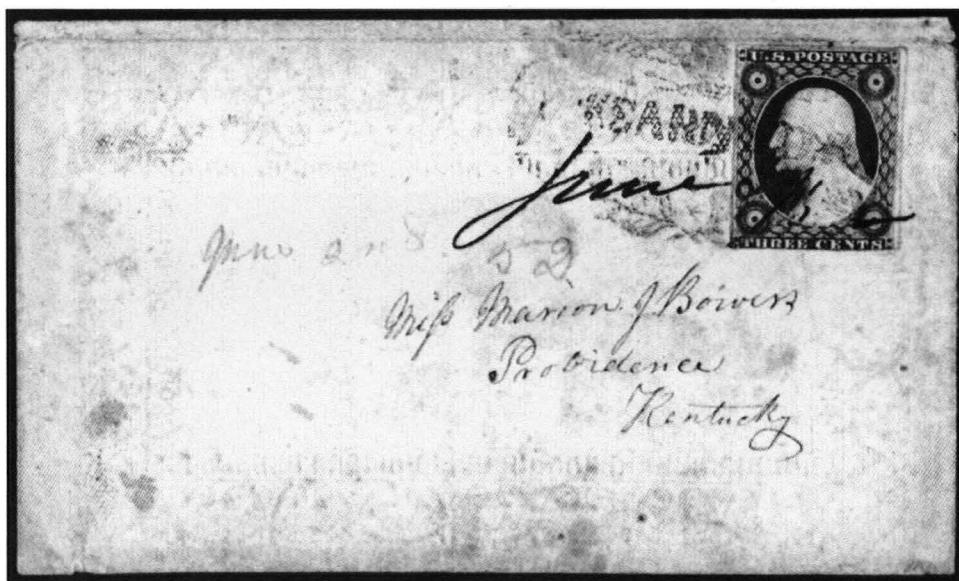 U.S. POSTAGE
June
THREE CENTS
June 2nd 52
Miss Marion J Bowers
Providence
Kentucky